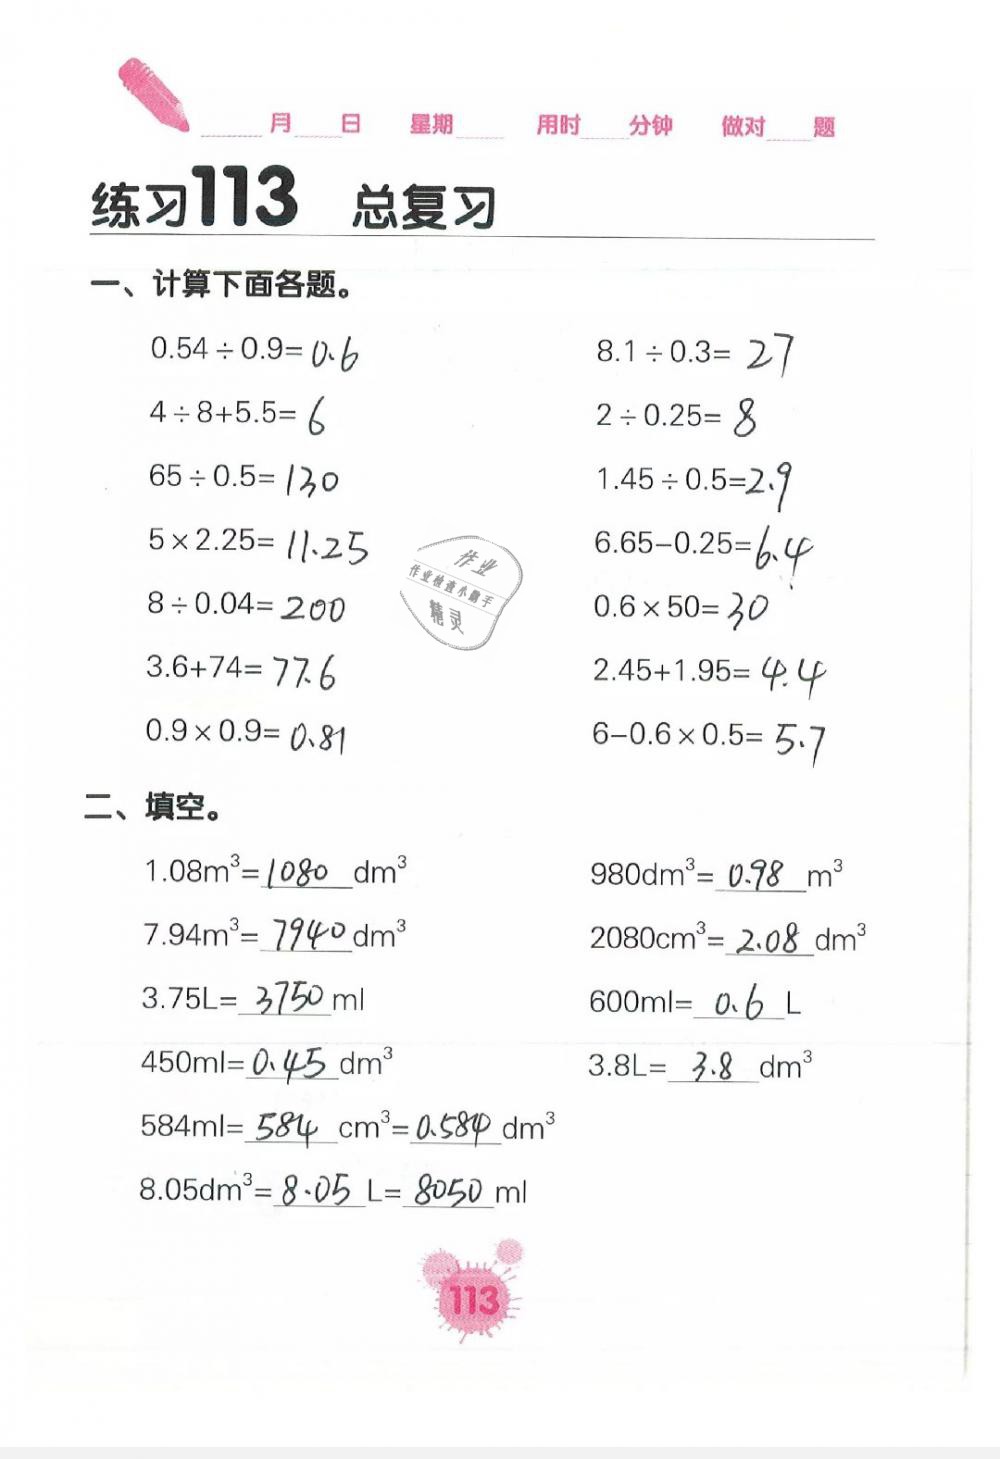 月 日 星期 用时 分钟 做对 题
练习113 总复习
一、计算下面各题。
0.54÷0.9=0.6 8.1÷0.3=27
4÷8+5.5=6 2÷0.25=8
65÷0.5=130 1.45÷0.5=2.9
5×2.25=11.25 6.65-0.25=6.4
作业
作业检查小帮手
精灵
8÷0.04=200 0.6×50=30
3.6+74=77.6 2.45+1.95=4.4
0.9×0.9=0.81 6-0.6×0.5=5.7
二、填空。
1.08m³=1080 dm³ 980dm³=0.98 m³
7.94m³=7940 dm³ 2080cm³=2.08 dm³
3.75L=3750 ml 600ml=0.6 L
450ml=0.45 dm³ 3.8L=3.8 dm³
584ml=584 cm³=0.584 dm³
8.05dm³=8.05 L=8050 ml
113